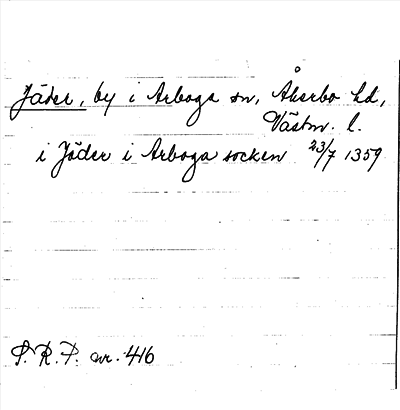 Jäder, by i Arboga sn, Åkerbo hd,
Västm. l.
i Jäder i Arboga socken 23/7 1359
S. R. P. nr. 416